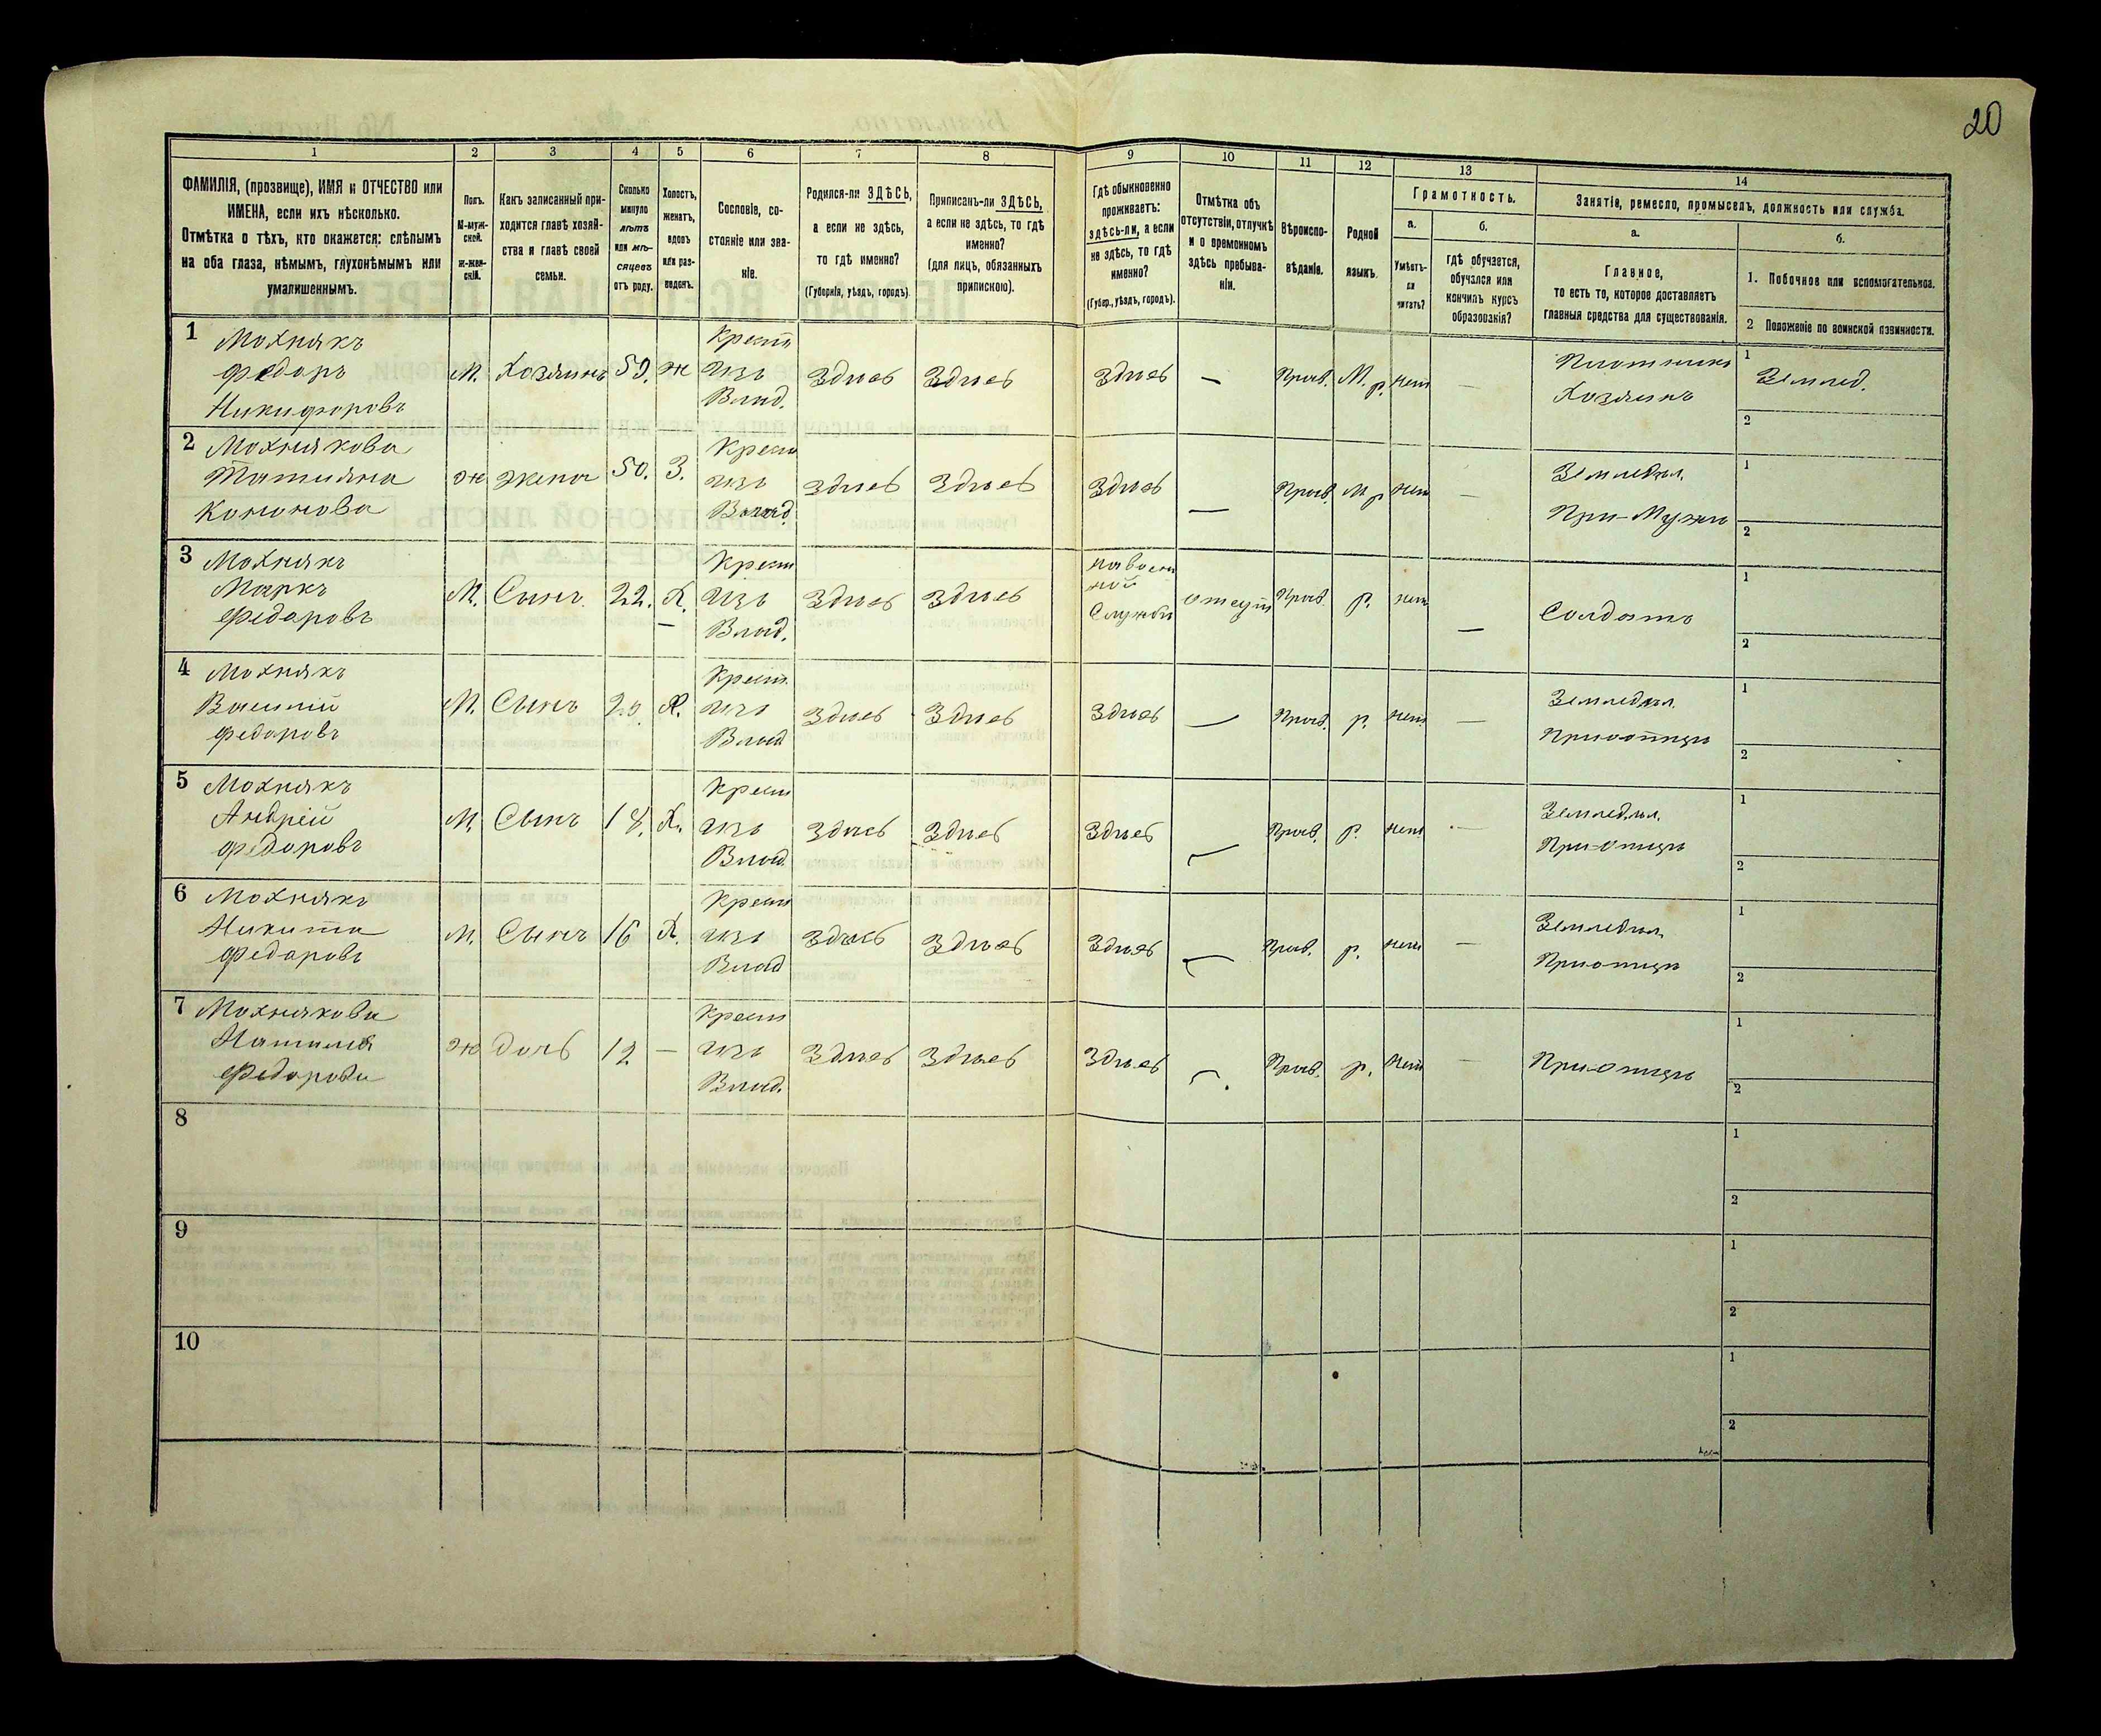 20
1 2 3 4 5 6 7 8 9 10 11 12 13 14
ФАМИЛІЯ, (прозвище), ИМЯ и ОТЧЕСТВО или
ИМЕНА, если ихъ нѣсколько.
Отмѣтка о тѣхъ, кто окажется: слѣпымъ
на оба глаза, нѣмымъ, глухонѣмымъ или
умалишеннымъ.
Полъ.
М-муж-
ской.
ж-жен-
скій.
Какъ записанный при-
ходится главѣ хозяй-
ства и главѣ своей
семьи.
Сколько
минуло
лѣтъ
или мѣ-
сяцевъ
отъ роду.
Холостъ,
женатъ,
вдовъ
или раз-
веденъ.
Сословіе, со-
стояніе или зва-
ніе.
Родился-ли ЗДѢСЬ,
а если не здѣсь,
то гдѣ именно?
(Губернія, уѣздъ, городъ).
Приписанъ-ли ЗДѢСЬ,
а если не здѣсь, то гдѣ
именно?
(для лицъ, обязанныхъ
припискою).
Гдѣ обыкновенно
проживаетъ:
здѣсь-ли, а если
не здѣсь, то гдѣ
именно?
(Губер., уѣздъ, городъ).
Отмѣтка объ
отсутствіи, отлучкѣ
и о временномъ
здѣсь пребыва-
ніи.
Вѣроиспо-
вѣданіе.
Родной
языкъ.
Грамотность.
а.
Умѣетъ-
ли
читать?
б.
гдѣ обучается,
обучался или
кончилъ курсъ
образованія?
Занятіе, ремесло, промыселъ, должность или служба.
а.
Главное,
то есть то, которое доставляетъ
главныя средства для существованія.
б.
1. Побочное или вспомогательное.
2 Положеніе по воинской повинности.
1 Мохнякъ Крест Плотникъ 1
Федоръ М. Хозяинъ 59. ж изъ Здѣсь Здѣсь Здѣсь — Прав. М. р. нет — Хозяинъ Землед.
Никифоровъ Влад. 2
2 Мохнякова Крест Земледѣл. 1
Татияна ж жена 50. З. изъ Здѣсь Здѣсь Здѣсь — Прав. М р нет —
Кононова Влад. При-Мужи 2
3 Мохнякъ Крест на воен 1
Маркъ М. Сынъ 22. Х. изъ Здѣсь Здѣсь ной отсут Прав. р. нет — Солдатъ
Федоровъ Влад. Службы 2
4 Мохнякъ Крест. Земледѣл. 1
Василій М. Сынъ 20. Х. изъ Здѣсь Здѣсь Здѣсь — Прав. р. нет —
Федоровъ Влад При отцѣ 2
5 Мохнякъ Крест Земледѣл. 1
Андрей М. Сынъ 18. Х. изъ Здѣсь Здѣсь Здѣсь — Прав. р. нет —
Федоровъ Влад При-отцѣ 2
6 Мохнякъ Крест Земледѣл. 1
Никита М. Сынъ 16 Х. изъ Здѣсь Здѣсь Здѣсь — Прав. р. нет —
Федоровъ Влад При отцѣ 2
7 Мохнякова Крест 1
ж дочь 12 — изъ Здѣсь Здѣсь Здѣсь — Прав. р. нет — При-отцѣ
Федорова Влад. 2
8 1
2
9 1
2
10 1
2